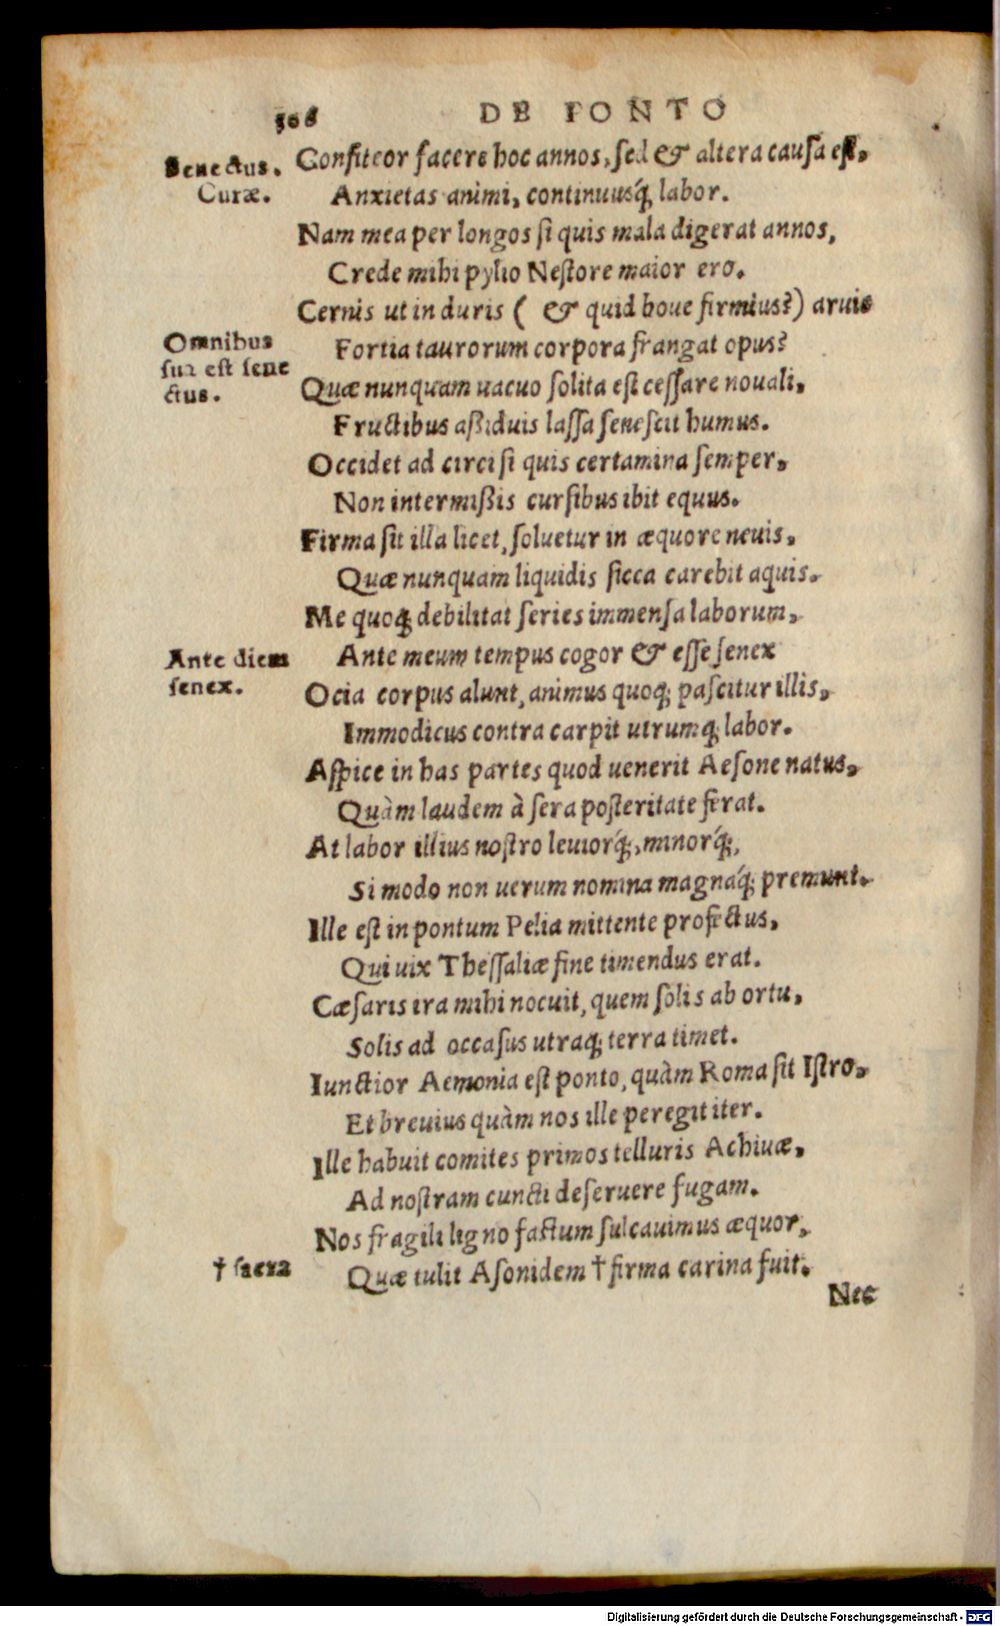 306 DE PONTO
Senectus. Confiteor facere hoc annos, sed & altera causa est,
Curæ. Anxietas animi, continuusq́; labor.
Nam mea per longos si quis mala digerat annos,
Crede mihi pylio Nestore maior ero.
Cernis ut in duris ( & quid boue firmius?) aruis
Omnibus Fortia taurorum corpora frangat opus?
sua est sene
ctus. Quæ nunquam uacuo solita est cessare nouali,
Fructibus aßiduis lassa senescit humus.
Occidet ad circi si quis certamina semper,
Non intermißis cursibus ibit equus.
Firma sit illa licet, soluetur in æquore neuis,
Quæ nunquam liquidis sicca carebit aquis.
Me quoq; debilitat series immensa laborum,
Ante diem Ante meum tempus cogor & esse senex
senex. Ocia corpus alunt, animus quoq; pascitur illis,
Immodicus contra carpit utrumq; labor.
Aspice in has partes quod uenerit Aesone natus,
Quàm laudem à sera posteritate ferat.
At labor illius nostro leuiorq́;, minorq́;,
Si modo non uerum nomina magnaq́; premunt.
Ille est in pontum Pelia mittente profectus,
Qui uix Thessaliæ fine timendus erat.
Cæsaris ira mihi nocuit, quem solis ab ortu,
Solis ad occasus utraq; terra timet.
Iunctior Aemonia est ponto, quàm Roma sit Istro,
Et breuius quàm nos ille peregit iter.
Ille habuit comites primos telluris Achiuæ,
Ad nostram cuncti deseruere fugam.
Nos fragili ligno factum sulcauimus æquor,
† sacra Quæ tulit Asonidem † firma carina fuit.
Nec
Digitalisierung gefördert durch die Deutsche Forschungsgemeinschaft - DFG